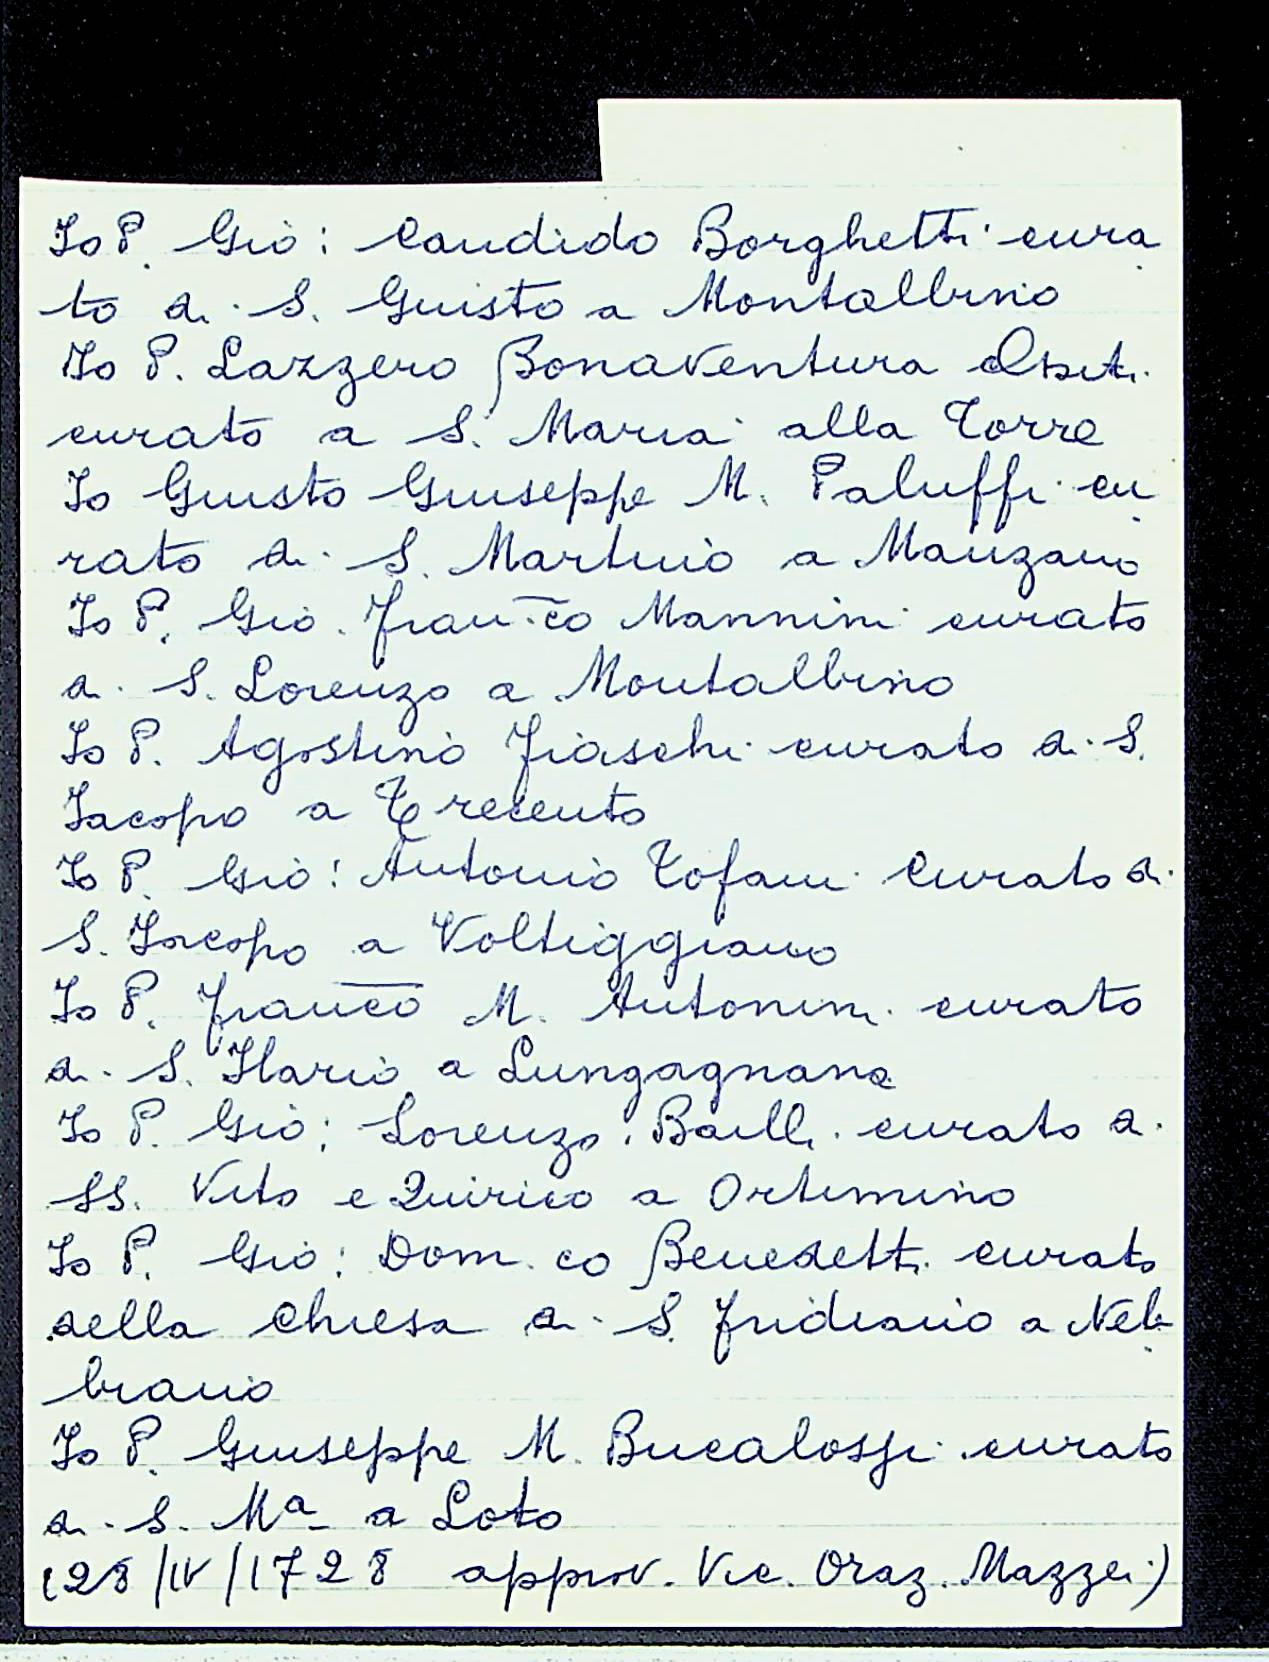 Io P. Giò: Candido Borghetti cura
to di S. Giusto a Montalbino
Io P. Lazzero Bonaventura
curato a S. Maria alla Torre
Io Giusto Giuseppe M. Paluffi cu
rato di S. Martino a Manzano
Io P. Giò. Fran.co Mannini curato
di S. Lorenzo a Montalbino
Io P. Agostino Fiaschi curato di S.
Iacopo a Trecento
Io P. Giò: Antonio Tofani Curato di
S. Iacopo a Voltiggiano
Io P. Franco M. Antonini curato
di S. Ilario a Lungagnana
Io P. Giò: Lorenzo Bailli curato di
SS. Vito e Quirico a Ortimino
Io P. Giò: Dom.co Benedetti curato
della Chiesa di S. Fridiano a Neb
biano
Io P. Giuseppe M. Bucalossi curato
di S. Mª a Loto
(28/IV/1728 approv. Vic. Oraz. Mazzei)